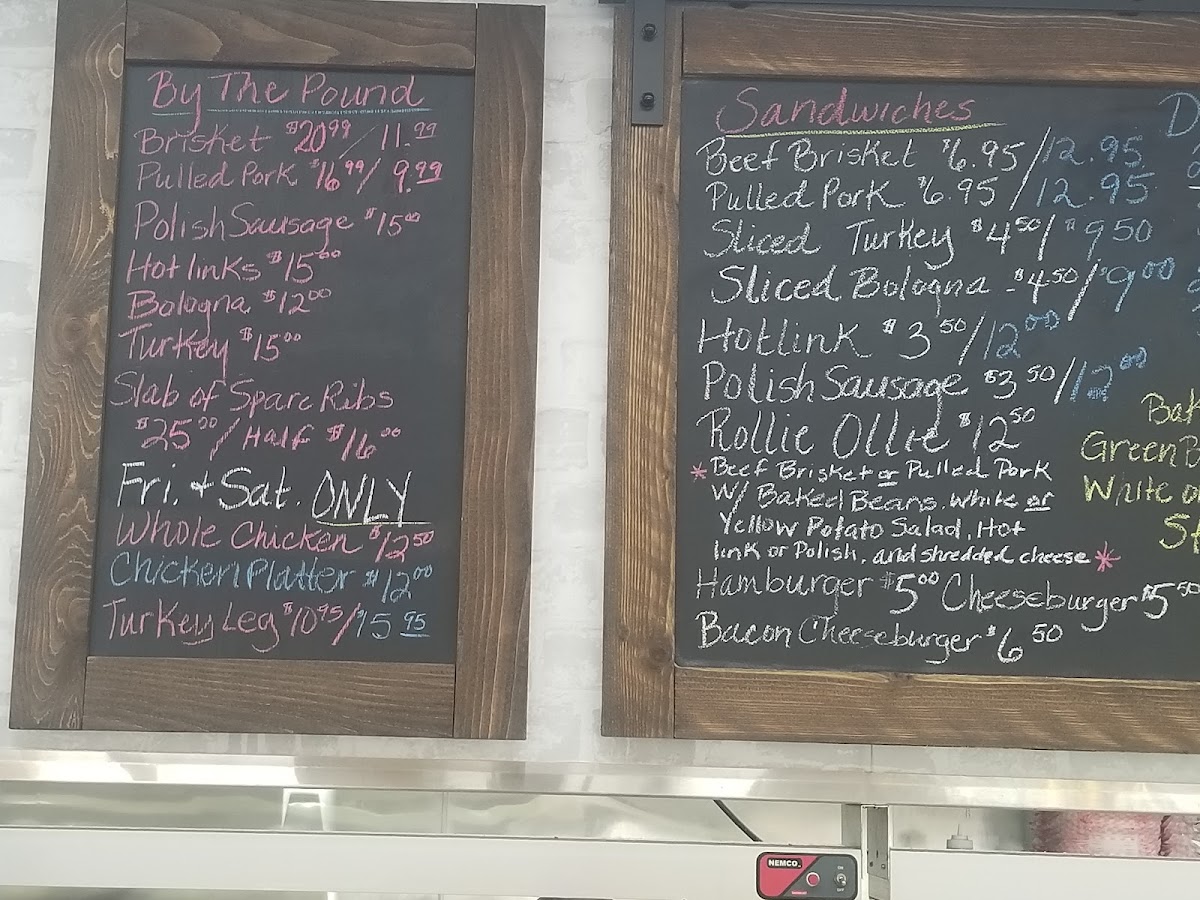 By The Pound
Brisket $20.99 / 11.99
Pulled Pork $16.99 / 9.99
Polish Sausage $15.00
Hot links $15.00
Bologna $12.00
Turkey $15.00
Slab of Spare Ribs
$25.00 / Half $16.00
Fri. + Sat. ONLY
Whole Chicken $12.50
Chicken Platter $12.00
Turkey Leg $10.95/$15.95
Sandwiches
Beef Brisket $6.95/12.95
Pulled Pork $6.95/12.95
Sliced Turkey $4.50/$9.50
Sliced Bologna $4.50/$9.00
Hotlink $3.50/12.00
Polish Sausage $3.50/12.00
Rollie Ollie $12.50
*Beef Brisket or Pulled Pork
W/ Baked Beans, white or
Yellow Potato Salad, Hot
link or Polish, and shredded cheese*
Hamburger $5.00 Cheeseburger $5.50
Bacon Cheeseburger $6.50
D
Bak
Green B
White o
NEMCO
ON
OFF